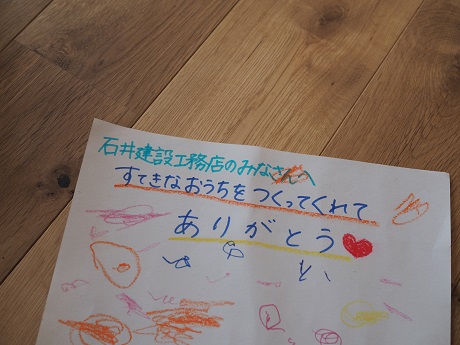 石井建設工務店のみなさんへ
すてきなおうちをつくってくれて
ありがとう